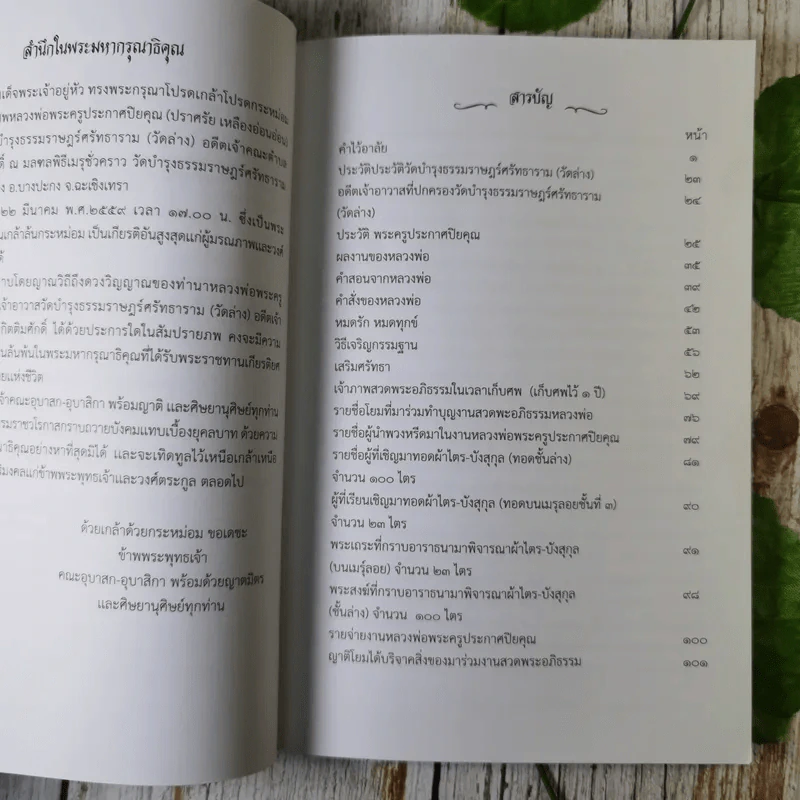 สำนึกในพระมหากรุณาธิคุณ
ด็จพระเจ้าอยู่หัว ทรงพระกรุณาโปรดเกล้าโปรดกระหม่อม
พหลวงพ่อพระครูประกาศปิยคุณ (ปราศรัย เหลืองอ่อนอ่อน)
บำรุงธรรมราษฎร์ศรัทธาราม (วัดล่าง) อดีตเจ้าคณะตำบล
ติ์ ณ มลฑลพิธีเมรุชั่วคราว วัดบำรุงธรรมราษฎร์ศรัทธาราม
ง อ.บางปะกง จ.ฉะเชิงเทรา
๒๒ มีนาคม พ.ศ.๒๕๕๙ เวลา ๑๗.๐๐ น. ซึ่งเป็นพระ
นเกล้าล้นกระหม่อม เป็นเกียรติอันสูงสุดแก่ผู้มรณภาพและวงศ์
าบโดยญาณวิถีถึงดวงวิญญาณของท่านาหลวงพ่อพระครู
จ้าอาวาสวัดบำรุงธรรมราษฎร์ศรัทธาราม (วัดล่าง) อดีตเจ้า
กิตติมศักดิ์ ได้ด้วยประการใดในสัมปรายภพ คงจะมีความ
นล้นพ้นในพระมหากรุณาธิคุณที่ได้รับพระราชทานเกียรติยศ
ยแห่งชีวิต
จ้าคณะอุบาสก-อุบาสิกา พร้อมญาติ และศิษยานุศิษย์ทุกท่าน
รมราชวโรกาสกราบถวายบังคมแทบเบื้องยุคลบาท ด้วยความ
าธิคุณอย่างหาที่สุดมิได้ และจะเทิดทูลไว้เหนือเกล้าเหนือ
ริมงคลแก่ข้าพพระพุทธเจ้าและวงศ์ตระกูล ตลอดไป
ด้วยเกล้าด้วยกระหม่อม ขอเดชะ
ข้าพพระพุทธเจ้า
คณะอุบาสก-อุบาสิกา พร้อมด้วยญาตมิตร
และศิษยานุศิษย์ทุกท่าน
สารบัญ
หน้า
คำไว้อาลัย ๑
ประวัติประวัติวัดบำรุงธรรมราษฎร์ศรัทธาราม (วัดล่าง) ๒๓
อดีตเจ้าอาวาสที่ปกครองวัดบำรุงธรรมราษฎร์ศรัทธาราม ๒๔
(วัดล่าง)
ประวัติ พระครูประกาศปิยคุณ ๒๕
ผลงานของหลวงพ่อ ๓๕
คำสอนจากหลวงพ่อ ๓๙
คำสั่งของหลวงพ่อ ๔๒
หมดรัก หมดทุกข์ ๕๓
วิธีเจริญกรรมฐาน ๕๖
เสริมศรัทธา ๖๒
เจ้าภาพสวดพระอภิธรรมในเวลาเก็บศพ (เก็บศพไว้ ๑ ปี) ๖๙
รายชื่อโยมที่มาร่วมทำบุญงานสวดพะอภิธรรมหลวงพ่อ ๗๖
รายชื่อผู้นำพวงหรีดมาในงานหลวงพ่อพระครูประกาศปิยคุณ ๗๙
รายชื่อผู้ที่เชิญมาทอดผ้าไตร-บังสุกุล (ทอดชั้นล่าง) ๘๑
จำนวน ๑๐๐ ไตร
ผู้ที่เรียนเชิญมาทอดผ้าไตร-บังสุกุล (ทอดบนเมรุลอยชั้นที่ ๓) ๙๐
จำนวน ๒๓ ไตร
พระเถระที่กราบอาราธนามาพิจารณาผ้าไตร-บังสุกุล ๙๑
(บนเมรุ์ลอย) จำนวน ๒๓ ไตร
พระสงฆ์ที่กราบอาราธนามาพิจารณาผ้าไตร-บังสุกุล ๙๘
(ชั้นล่าง) จำนวน ๑๐๐ ไตร
รายจ่ายงานหลวงพ่อพระครูประกาศปิยคุณ ๑๐๐
ญาติโยมได้บริจาคสิ่งของมาร่วมงานสวดพระอภิธรรม ๑๐๑